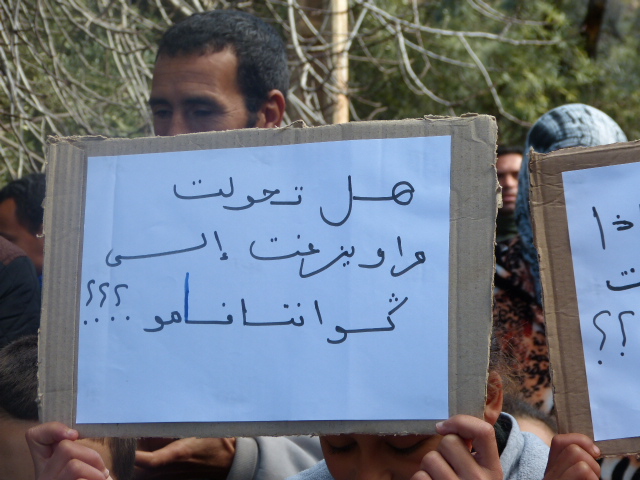 هل تحولت
مراويزغت إلى
ڭوانتانامو ؟؟؟
ذا
ت
؟؟